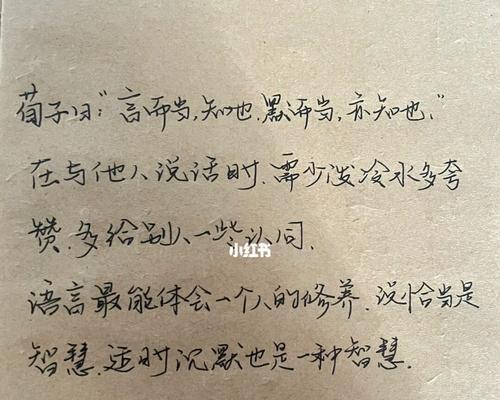 荀子曰:"言而当,知也.默而当,亦知也."
在与他人说话时.需少泼冷水多夸
赞.多给别人一些认同.
小红书
语言最能体会一个人的修养.说恰当是
智慧.适时沉默也是一种智慧.